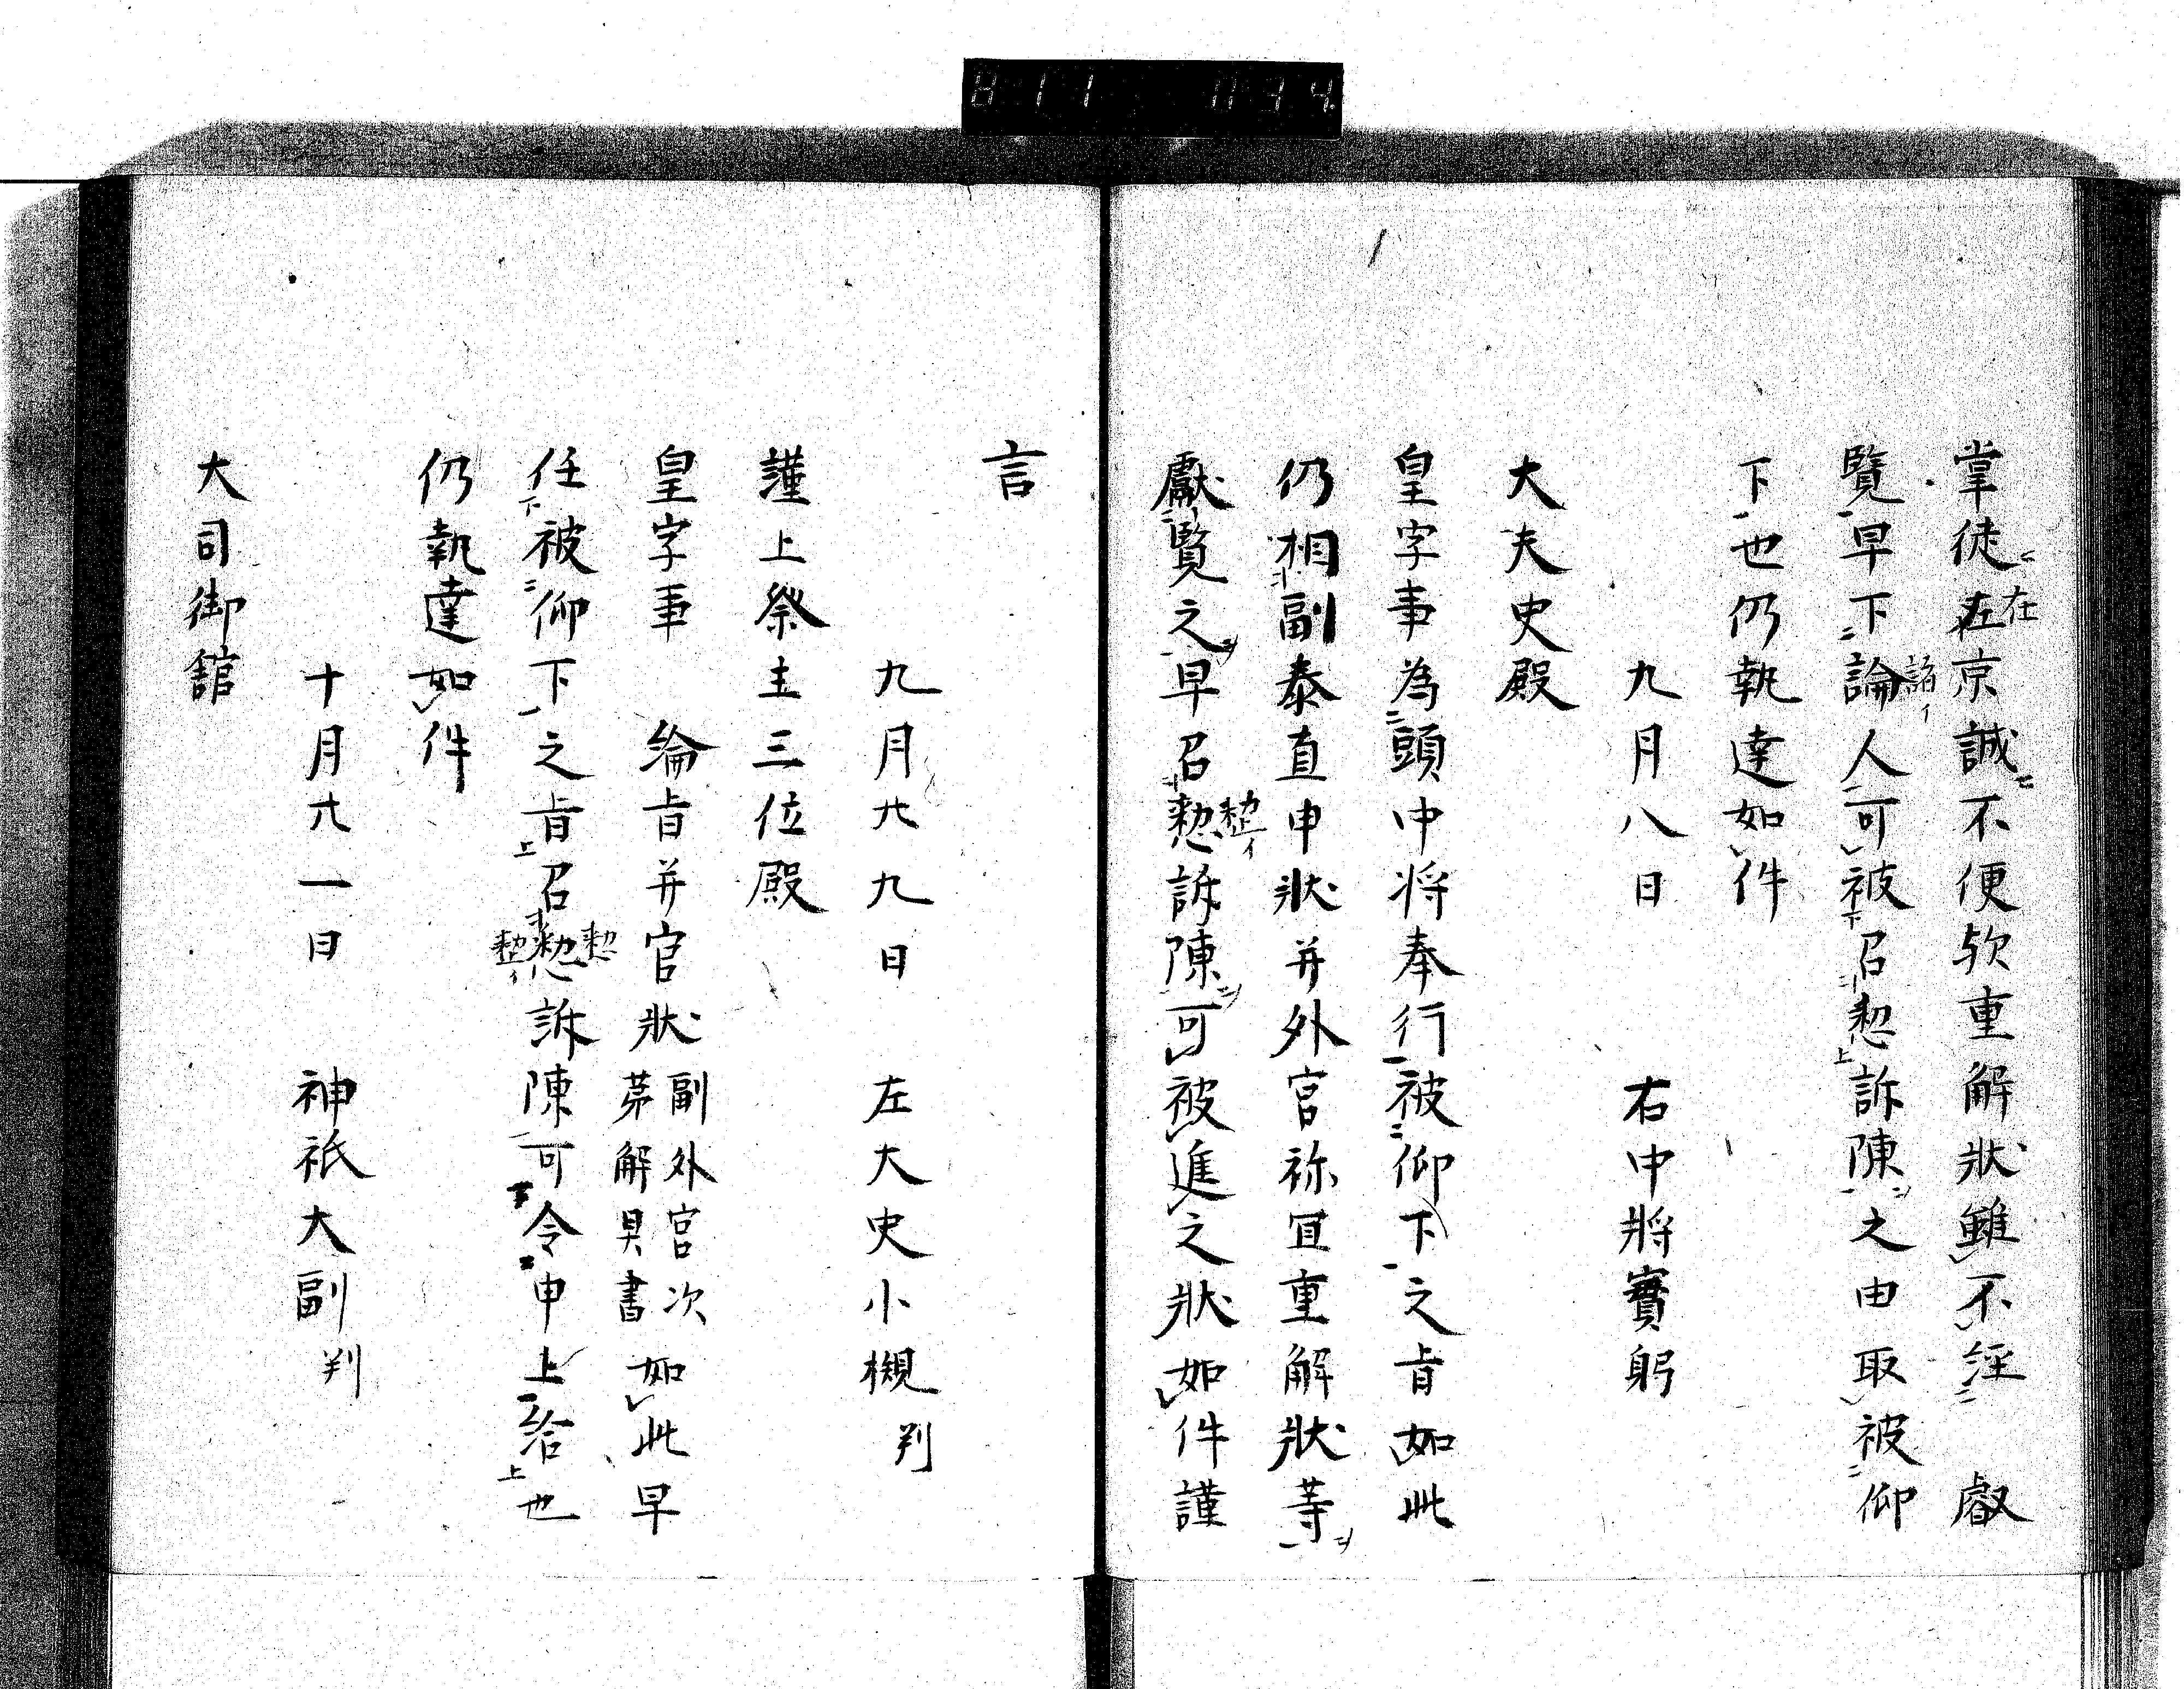 掌徒在京誠不便欤重解狀雖不経　叡
覧早下論人可被召愸訴陳之由取被仰
下也仍執達如件
九月八日　右中將實躬
大夫史殿
皇字事為頭中将奉行被仰下之旨如此
仍相副泰直申狀并外宮祢冝重解狀等
獻覧之早召愸訴陳可被進之狀如件謹
言
九月廿九日　左大史小槻判
謹上祭主三位殿
皇字事　綸旨并官狀副外宮次第解具書如此早
任被仰下之旨召愸訴陳可令申上給也
仍執達如件
十月廿一日　神祇大副判
大司御舘